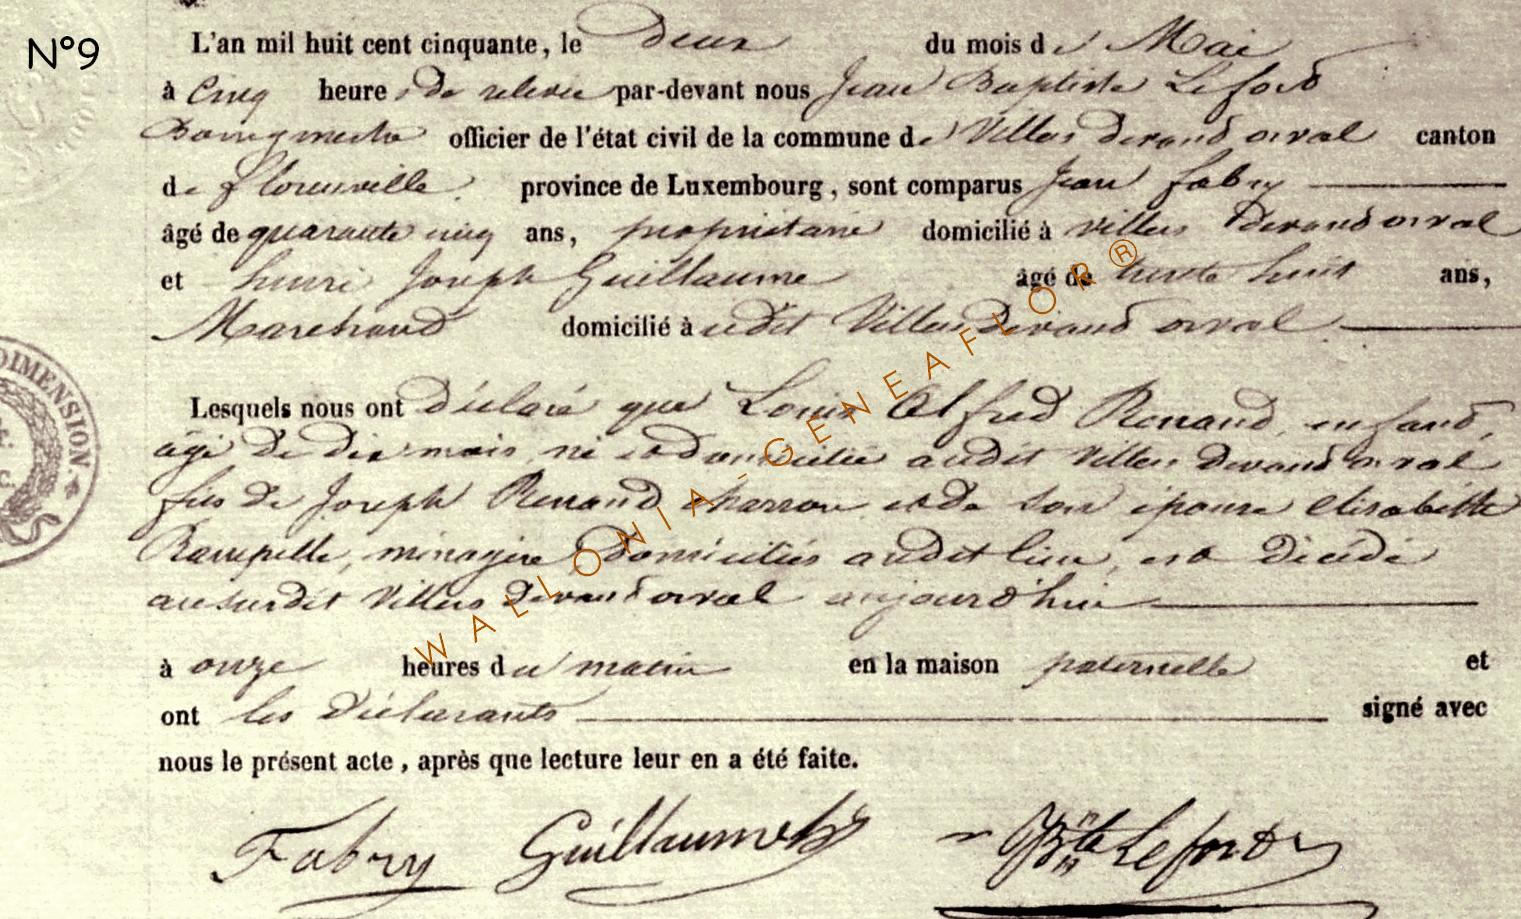 N°9
L'an mil huit cent cinquante, le deux du mois de Mai
à cinq heures de relevée par-devant nous Jean Baptiste Leford
Bourgmestre officier de l'état civil de la commune de Villers devand orval canton
de florenville province de Luxembourg, sont comparus Jean fabry
âgé de quarante cinq ans, propriétaire domicilié à villers devand orval
et henri Joseph Guillaume âgé de trente huit ans,
Marchand domicilié à udit Villers Devand orval
Lesquels nous ont déclaré que Louis Alfred Renaud, enfand,
âgé de dix mois, né et domicilié audit Villers devand orval
fils de Joseph Renaud charron et de son épouse elisabeth
ménagère domiciliés audit lieu, est décédé
au susdit Villers devand orval aujourd'hui
à onze heures du matin en la maison paternelle et
ont les déclarants signé avec
nous le présent acte, après que lecture leur en a été faite.
Fabry Guillaume hj JBte Leford
DIMENSION.
WALLONIA-GENEAFLOR®